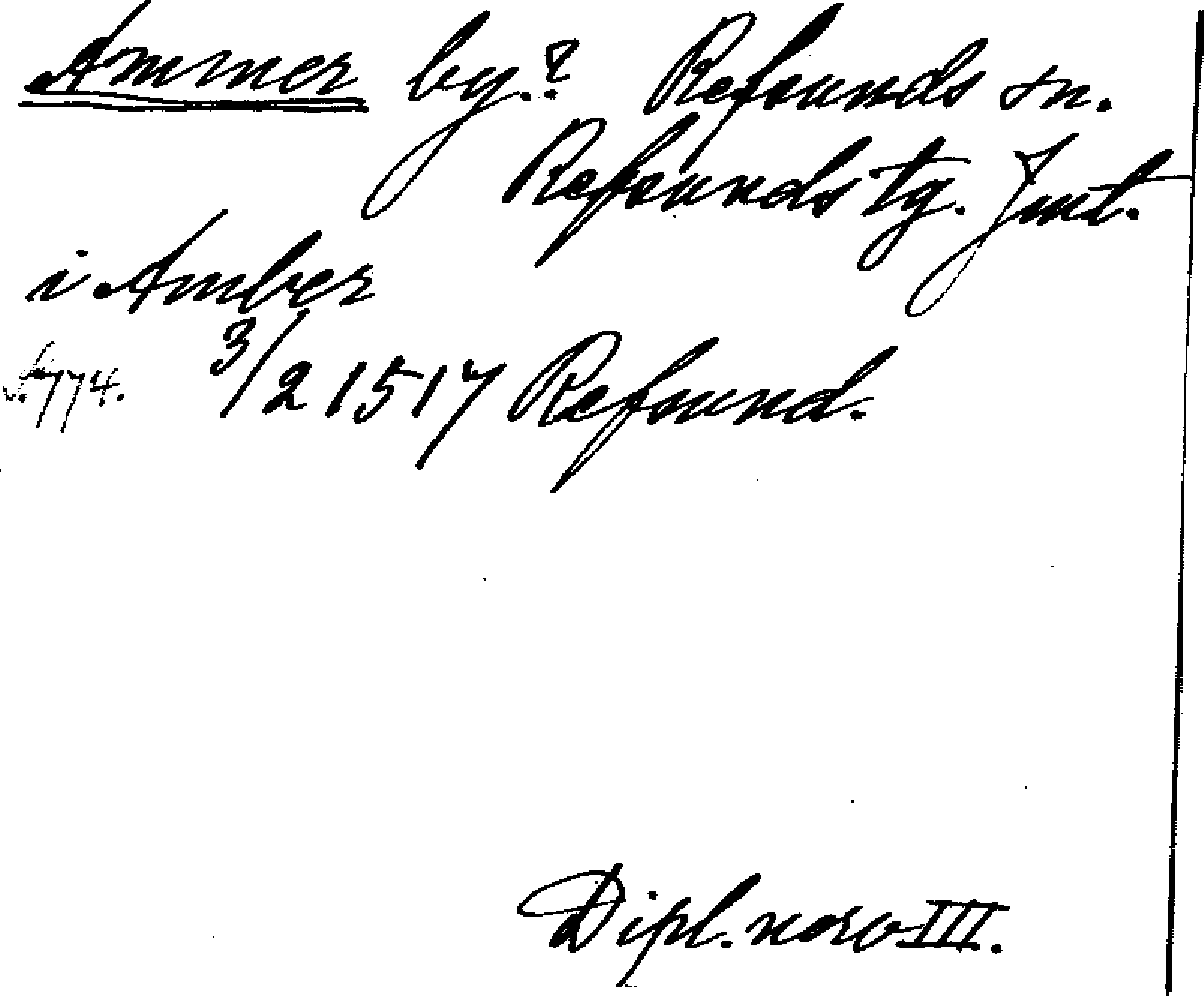 Ammer by.? Refsunds sn.
Refsunds tg. Jmt.
i Amber
s. 774. 3/2 1517 Refsund.
Dipl. norv III.